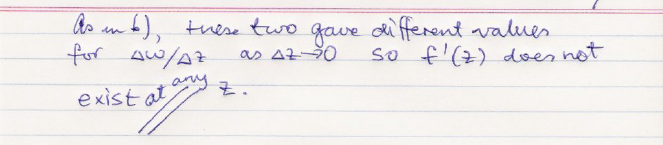 As in b), these two gave different values
for Δw/Δz as Δz→0 so f'(z) does not
exist at any z.